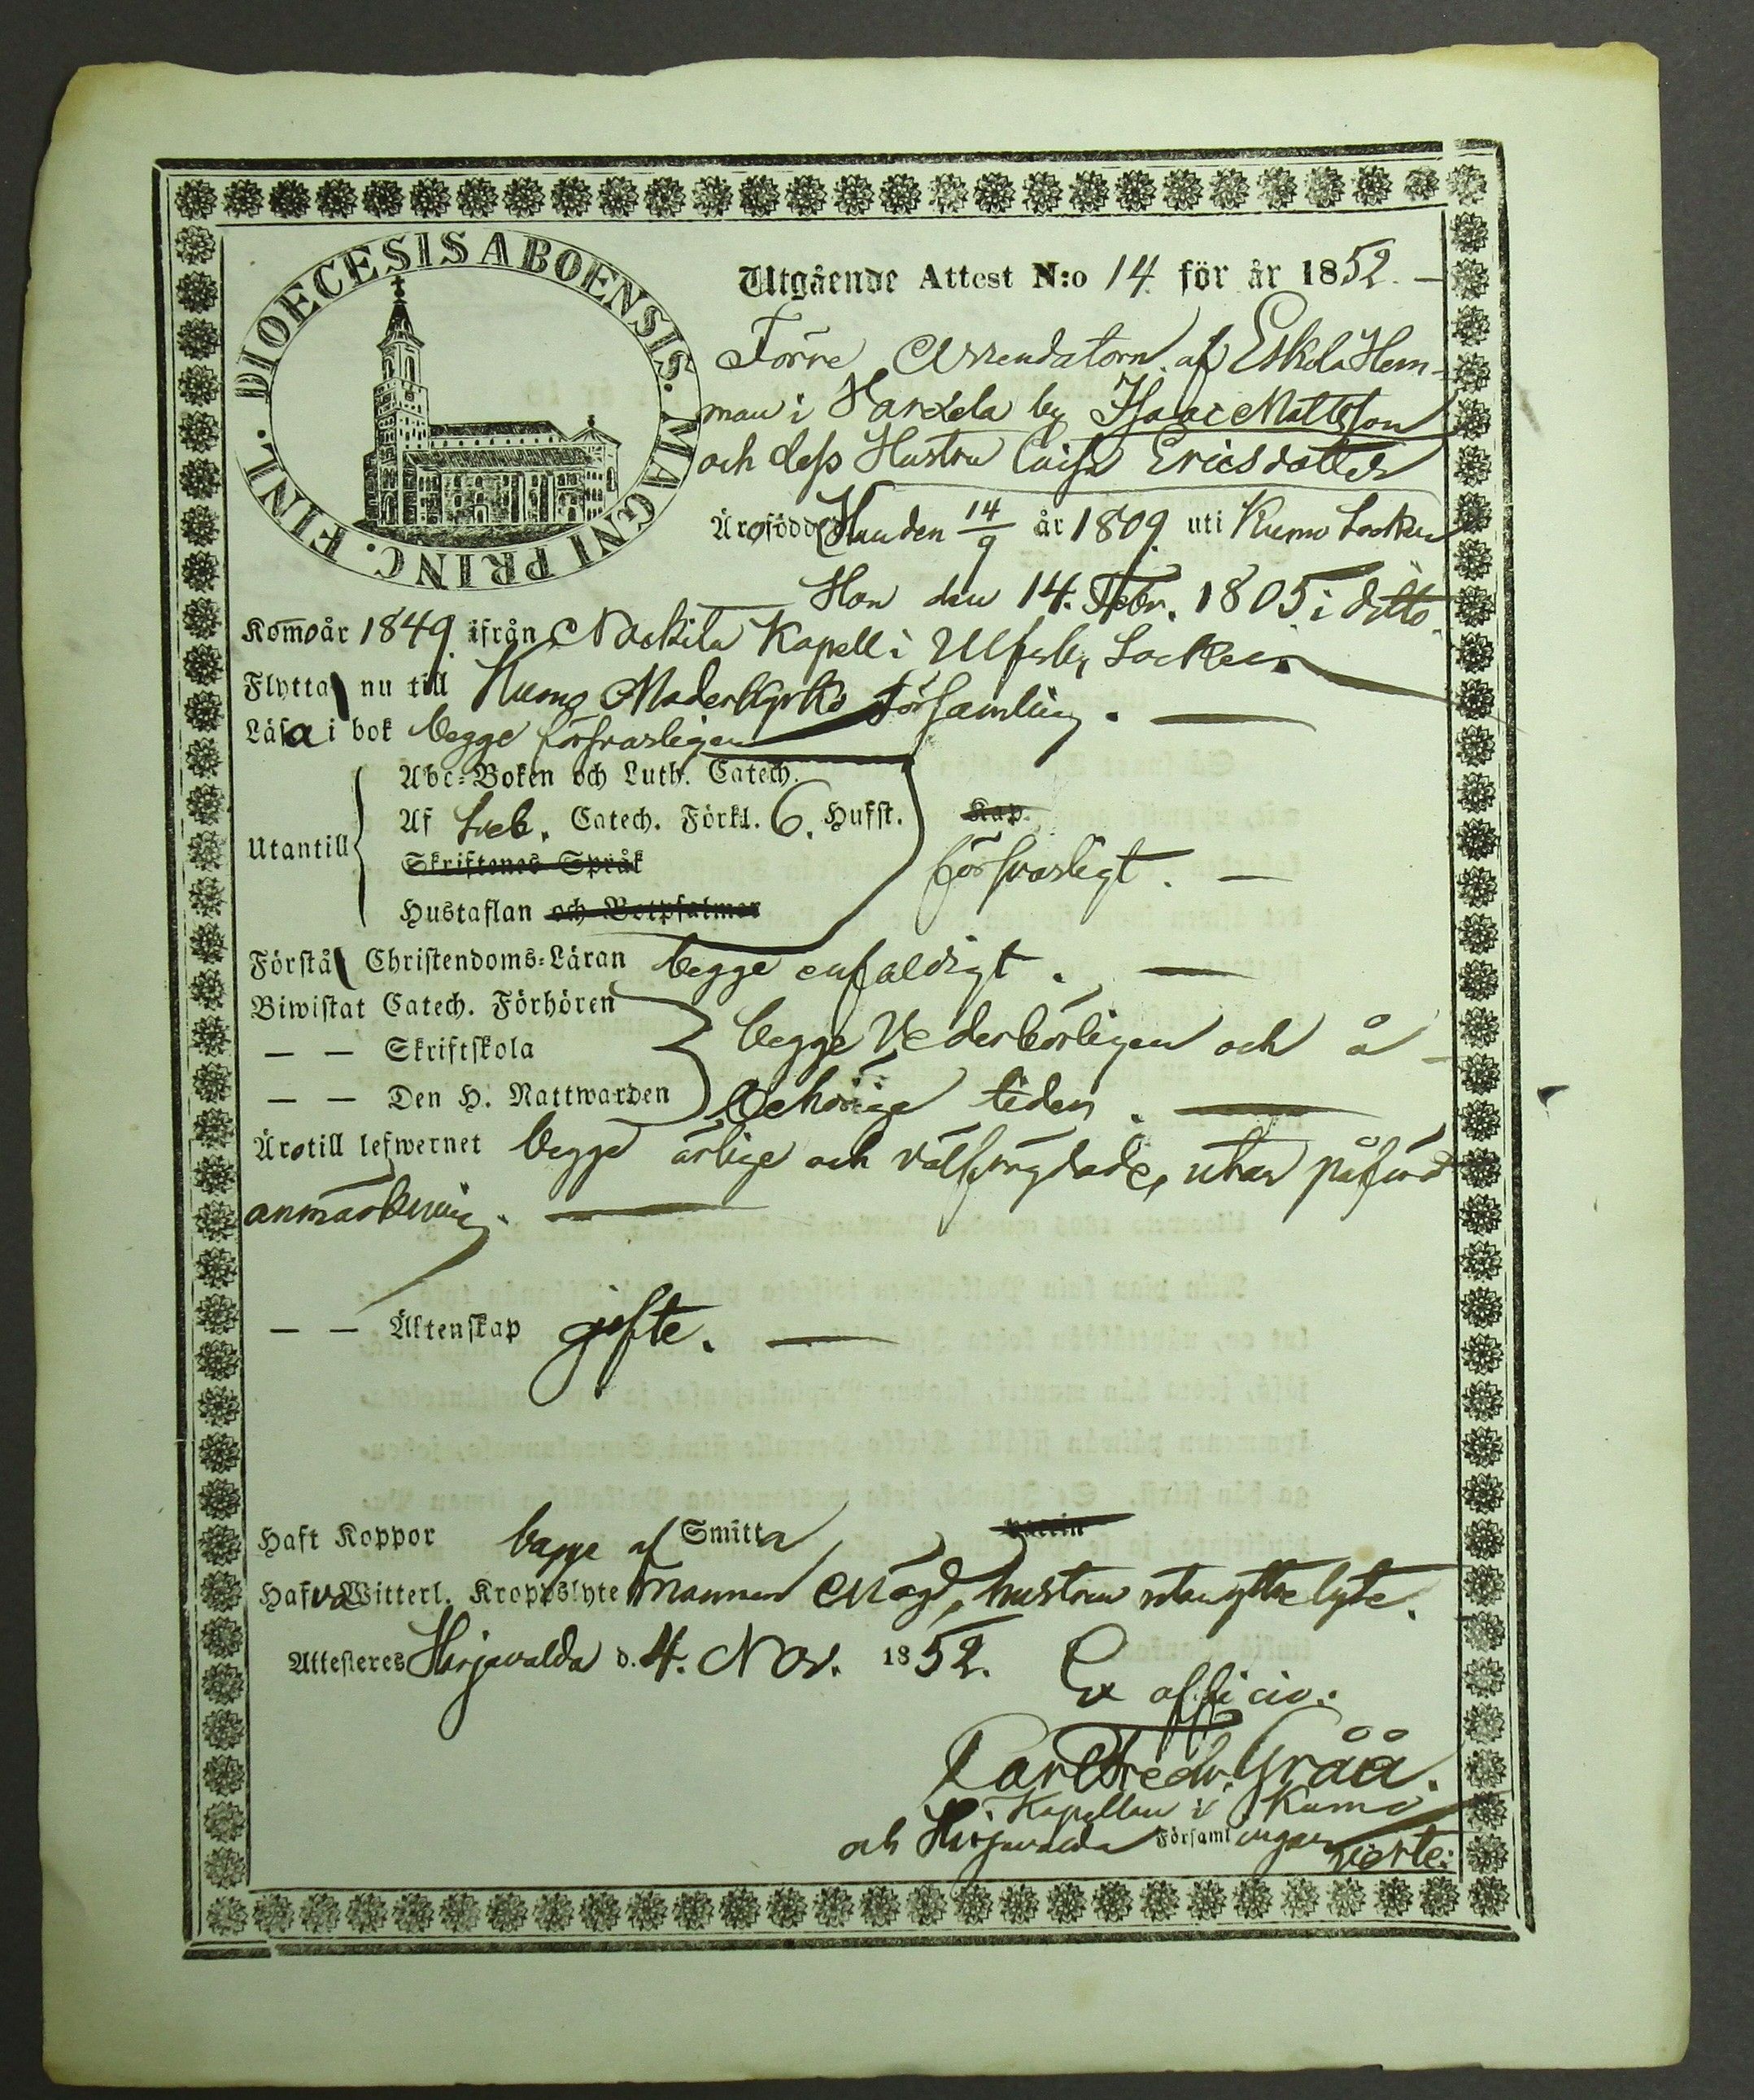 DIOECESIS ABOENSIS. MAGNI PRINC. FINL.
Utgående Attest N:o 14. för år 1852. –
Förre Arrendatorn af Eskola Hem-
man i Harxela by Isaac Mattsson
och dess Hustru Caisa Ericsdotter
Äro födde Han den 14/9 år 1809. uti Kumo Socken
Hon den 14. Febr. 1805. i ditto.
Komo år 1849. ifrån Nackila Kapell i Ulfsby Socken
Flytta nu till Kumo Moderkyrko Församling. –
Läsa i bok begge försvarligen
Abc-Boken och Luth. Catech.
Af Sveb. Catech. Förkl. 6. Hufst. Kap.
Utantill
Skriftenes Språk försvarligt. –
Hustaflan och Botpsalmer
Förstå Christendoms-Läran begge enfaldigt. –
Biwistat Catech. Förhören
— — Skriftskola begge Vederbörligen och å
— — Den H. Nattwarden behörige tider. –
Äro till lefwernet begge ärlige och välfrägdade, utan påförd
anmärkning. –
— — Äktenskap gifte. –
Haft Koppor begge af Smitta
Hafva Witterl. Kroppslyte mannen enögd, hustrun utan yttre lyte.
Attesteres Harjavalda d. 4. Nov. 1852.
Ex officio.
Carl Fredr. Gråå.
Kapellan i Kumo
och Harjavalda Församlingar